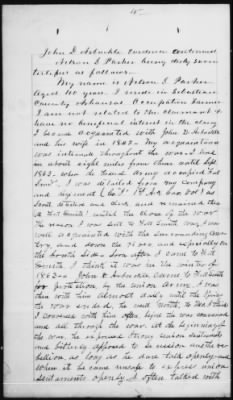 15
John D. Arbuckle Evidence Continued
Nelson S. Parker being duly sworn
testifies as follows.
My name is Nelson S. Parker
Aged 40 years. I reside in Sebastian
County Arkansas Occupation Farmer
I am not related to the claimant &
have no beneficial interest in the claim
I became acquainted with John D. Arbuckle
and his wife in 1842. My acquaintance
was intimate throughout the war. I lived
about eight miles from them until Sept
1863. when the Federal Army occupied Fort
Smith. I was detailed from my Company
and regiment
Scout
at Fort Smith until the close of the War
the reason I was sent to Fort Smith was, I was
well acquainted with the surrounding coun-
try, and down the river and especially on
the South Side. Soon after I came to Fort
Smith. I think it was in the winter of
1863-4 John D. Arbuckle came to Fort Smith
for protection by the Union Army. I was
then with him almost daily until the
the war
I conversed with him often before the war commenced
and all through the war. At the beginning of
the war, he expressed strong union sentiments
and bitterly opposed to secession and the re-
bellion as long as he dare talk openly. and
when it became unsafe to express union
sentiments openly. I often talked with